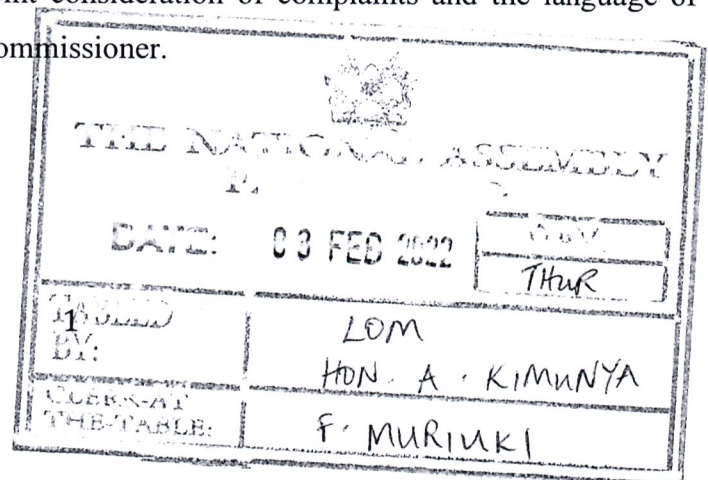 consideration of complaints and the language of
ommissioner.
THE NATIONAL ASSEMBLY
DATE: 03 FEB 2022
DAY
THUR
TABLED
1
BY:
LOM
HON. A. KIMUNYA
CLERK-AT
THE-TABLE:
F. MURIUKI